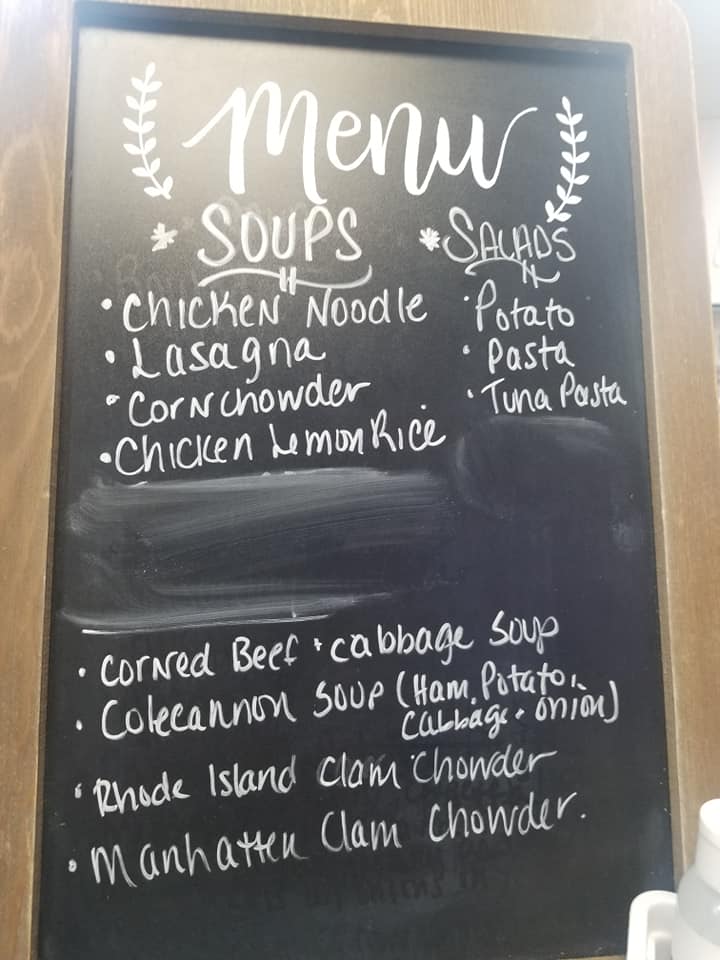 Menu
* SOUPS
• Chicken Noodle
• Lasagna
• Corn chowder
• Chicken Lemon Rice
* SALADS
• Potato
• Pasta
• Tuna Pasta
• Corned Beef + cabbage Soup
• Colecannon Soup (Ham, Potato,
Cabbage + onion)
• Rhode Island Clam Chowder
• Manhatten Clam Chowder.